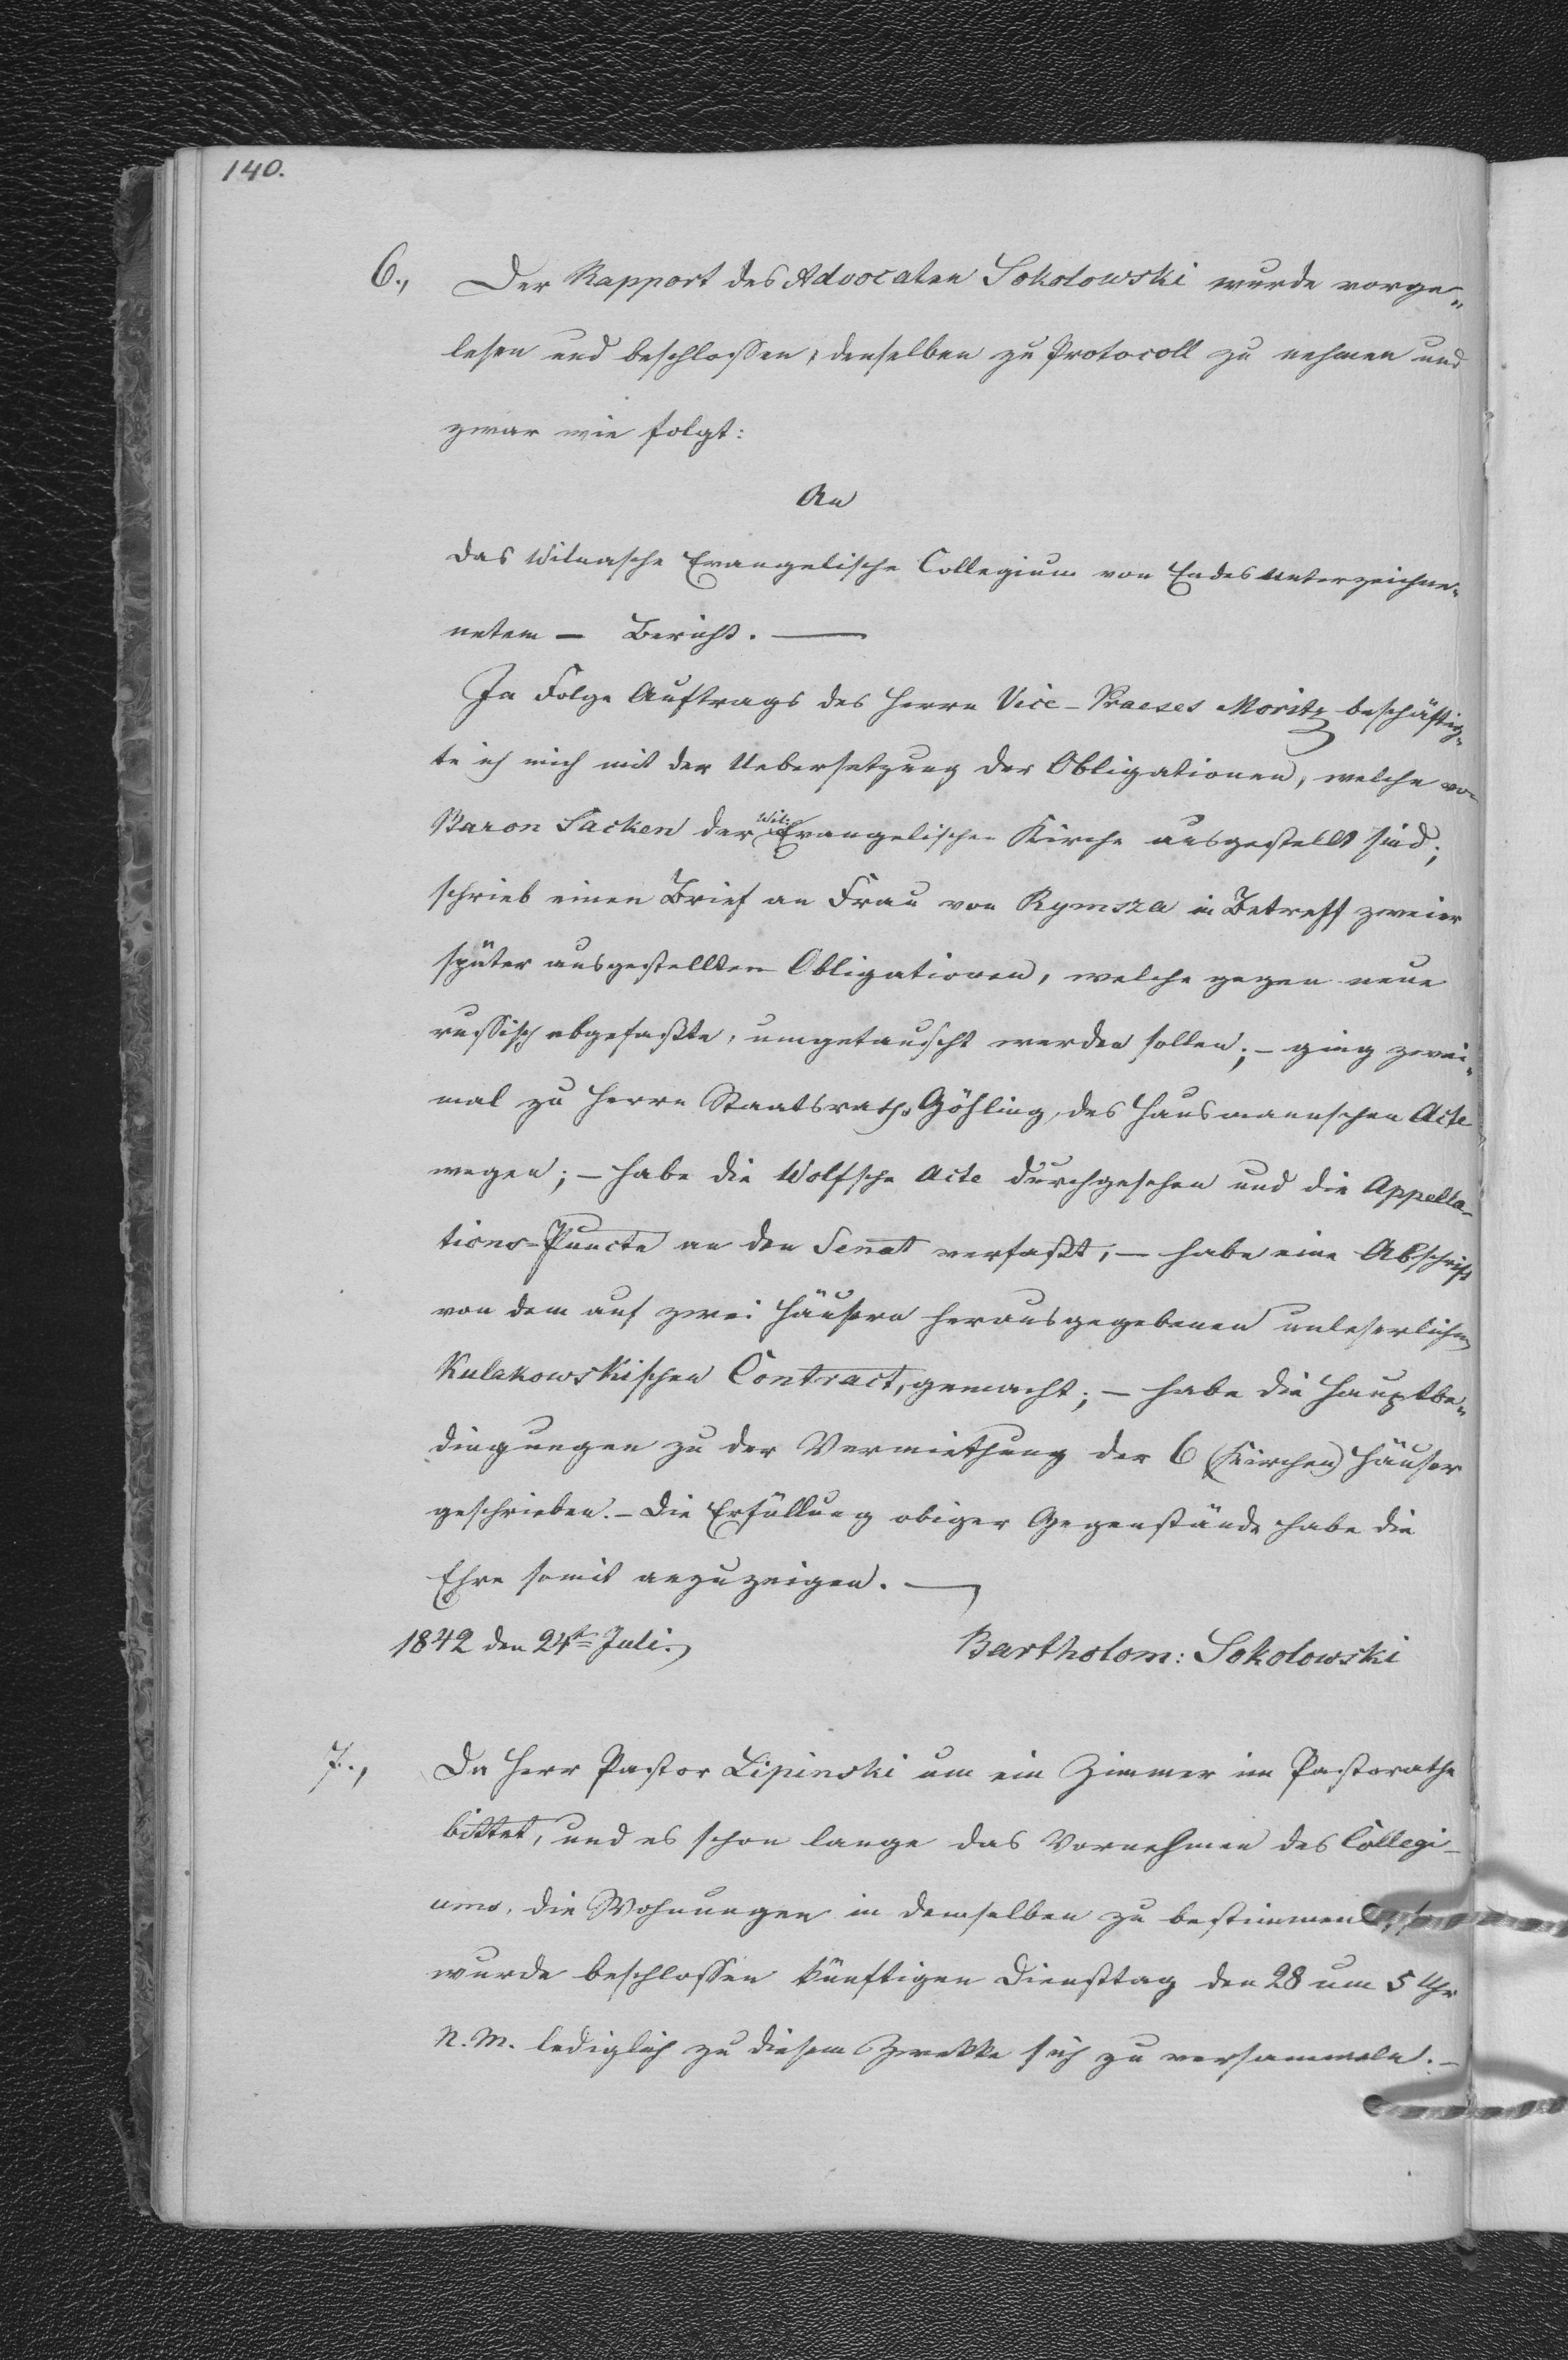 140.
6., Der Rapport des Advocaten Sokolowski wurde vorge„
lesen und beschlossen, denselben zu Protocoll zu nehmen und
zwar wie folgt:
An
das Wilnasche Evangelische Collegium von Endes Unterzeichne„
netem — Bericht. —
In Folge Auftrags des Herrn Vice-Praeses Moritz beschäftig„
te ich mich mit der Uebersetzung der Obligationen, welche von
Baron Sacken der Wil: Evangelischen Kirche ausgestellt sind;
schrieb einen Brief an Frau von Rymsza in Betreff zweier
später ausgestellten Obligationen, welche gegen neue
russisch abgefaßte, umgetauscht werden sollen; – ging zwei„
mal zu Herrn Staatsrath Göhling, des Hausmannschen Acte
wegen; – habe die Wolfsche Acte durchgesehen und die Appella-
tions-Puncte an den Senat verfaßt, – habe eine Abschrift
von dem auf zwei Häusern herausgegebenen unleserlichen
Kulakowskischen Contract, gemacht; – habe die Hauptbe„
dingungen zu der Vermiethung der 6 (Kirchen) Häuser
geschrieben. – Die Erfüllung obiger Gegenstände habe die
Ehre somit anzuzeigen. —
1842 den 24t Juli.
Bartholom: Sokolowski
7., Da Herr Pastor Lipinski um ein Zimmer im Pastorathe
bittet, und es schon lange das Vornehmen des Collegi-
ums, die Wohnungen in demselben zu bestimmen
wurde beschlossen künftigen Diensttag den 28 um 5 Uhr
N. M. lediglich zu diesem Zwekke sich zu versammeln. –